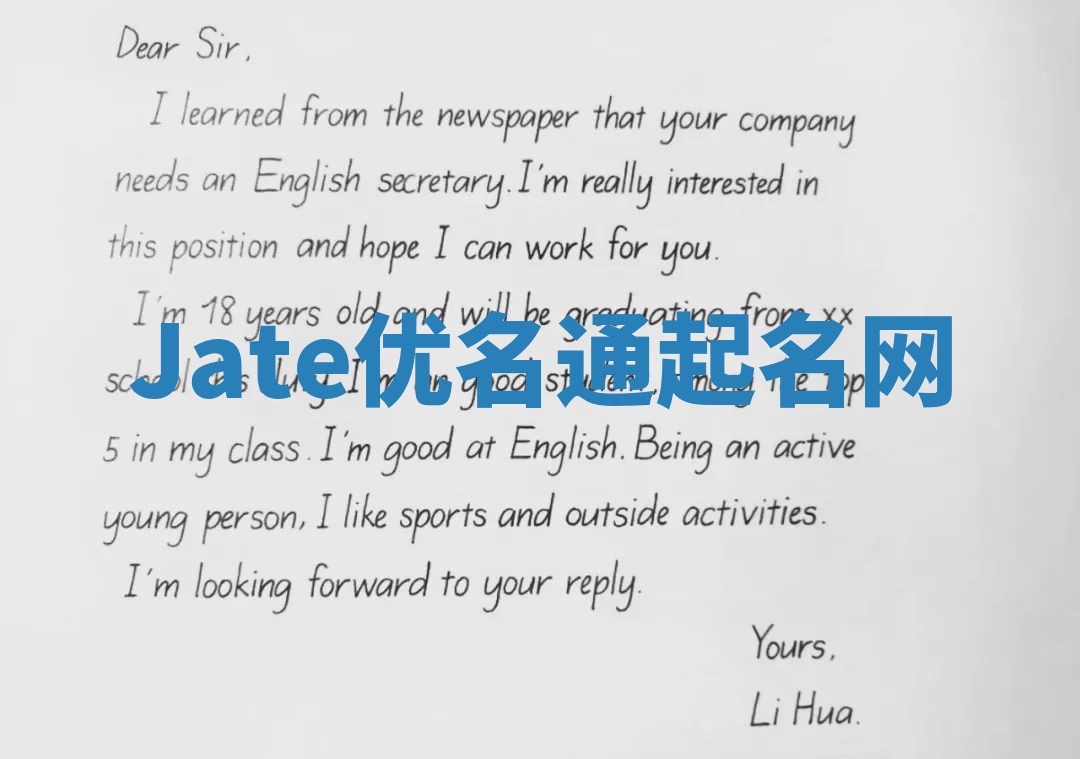 Dear Sir,
I learned from the newspaper that your company
needs an English secretary. I'm really interested in
this position and hope I can work for you.
I'm 18 years old and will be graduating from xx
Jate优名通起名网
school this July. I'm an good student, among the top
5 in my class. I'm good at English. Being an active
young person, I like sports and outside activities.
I'm looking forward to your reply.
Yours,
Li Hua.